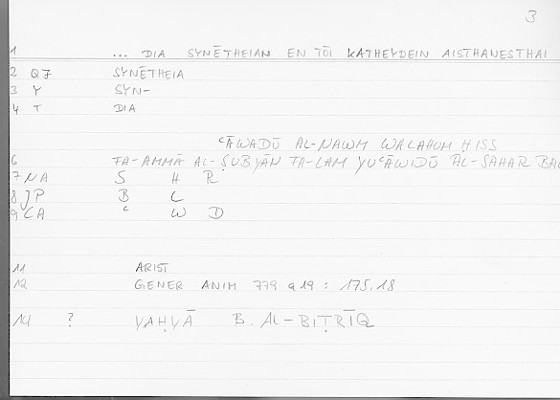 3
1 ... DIA SYNĒTHEIAN EN TŌI KATHEYDEIN AISTHANESTHAI
2 Q7 SYNĒTHEIA
3 Y SYN-
4 T DIA
ʿĀWADŪ AL-NAWM WALAHUM HISS
6 FA-AMMĀ AL-ṢUBYĀN FA-LAM YUʿĀWIDŪ AL-SAHAR
7 NA S H R
8 JP B L
9 LA ʿ W D
11 ARIST
12 GENER ANIM 779 a 19 : 175.18
14 ? YAḤYĀ B. AL-BIṬRĪQ